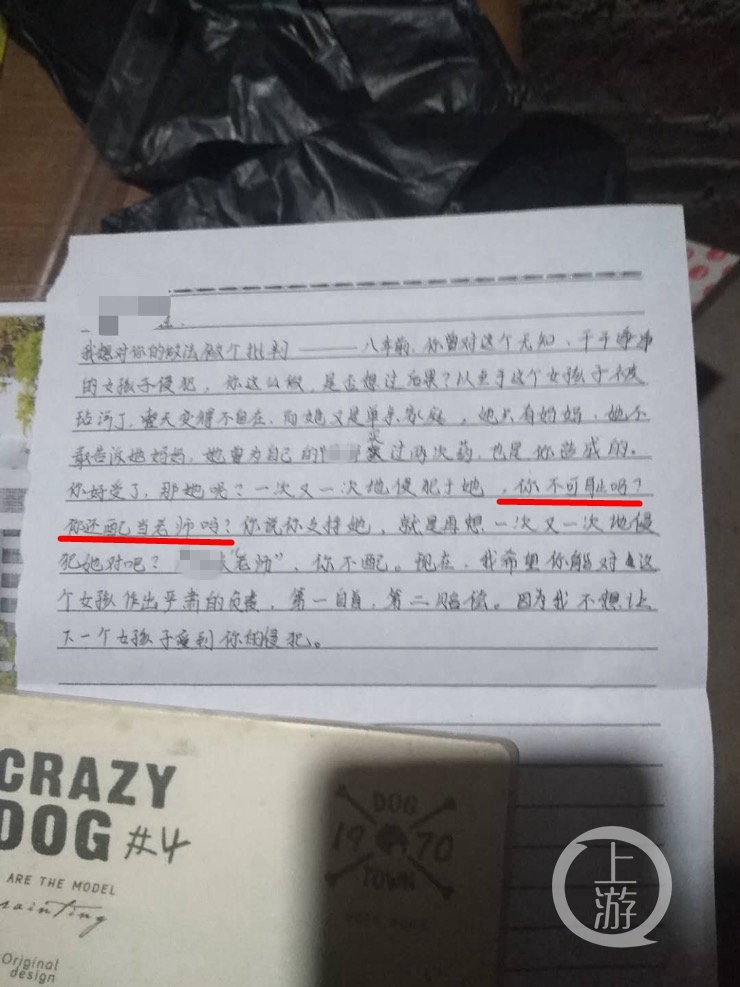 我想对你的做法做个批判——八年前,你曾对这个无知、干干净净
的女孩子侵犯,你这么做,是否想过后果?以至于这个女孩子不被
玷污了,整天变得不自在,而她又是单亲家庭,她只有妈妈,她不
敢告诉她妈妈,她曾为自己的 过两次药,也是你造成的。
你好受了,那她呢?一次又一次地侵犯于她,你不可耻吗?
你还配当老师吗?你说你支持她,就是再想一次又一次地侵
犯她对吧? "老师",你不配。现在,我希望你能对这
个女孩作出严肃的负责,第一自首,第二赔偿。因为我不想让
下一个女孩子受到你的侵犯。
CRAZY
DOG #4
ARE THE MODEL
painting
Original
design
DOG
19 70
TOWN
上游